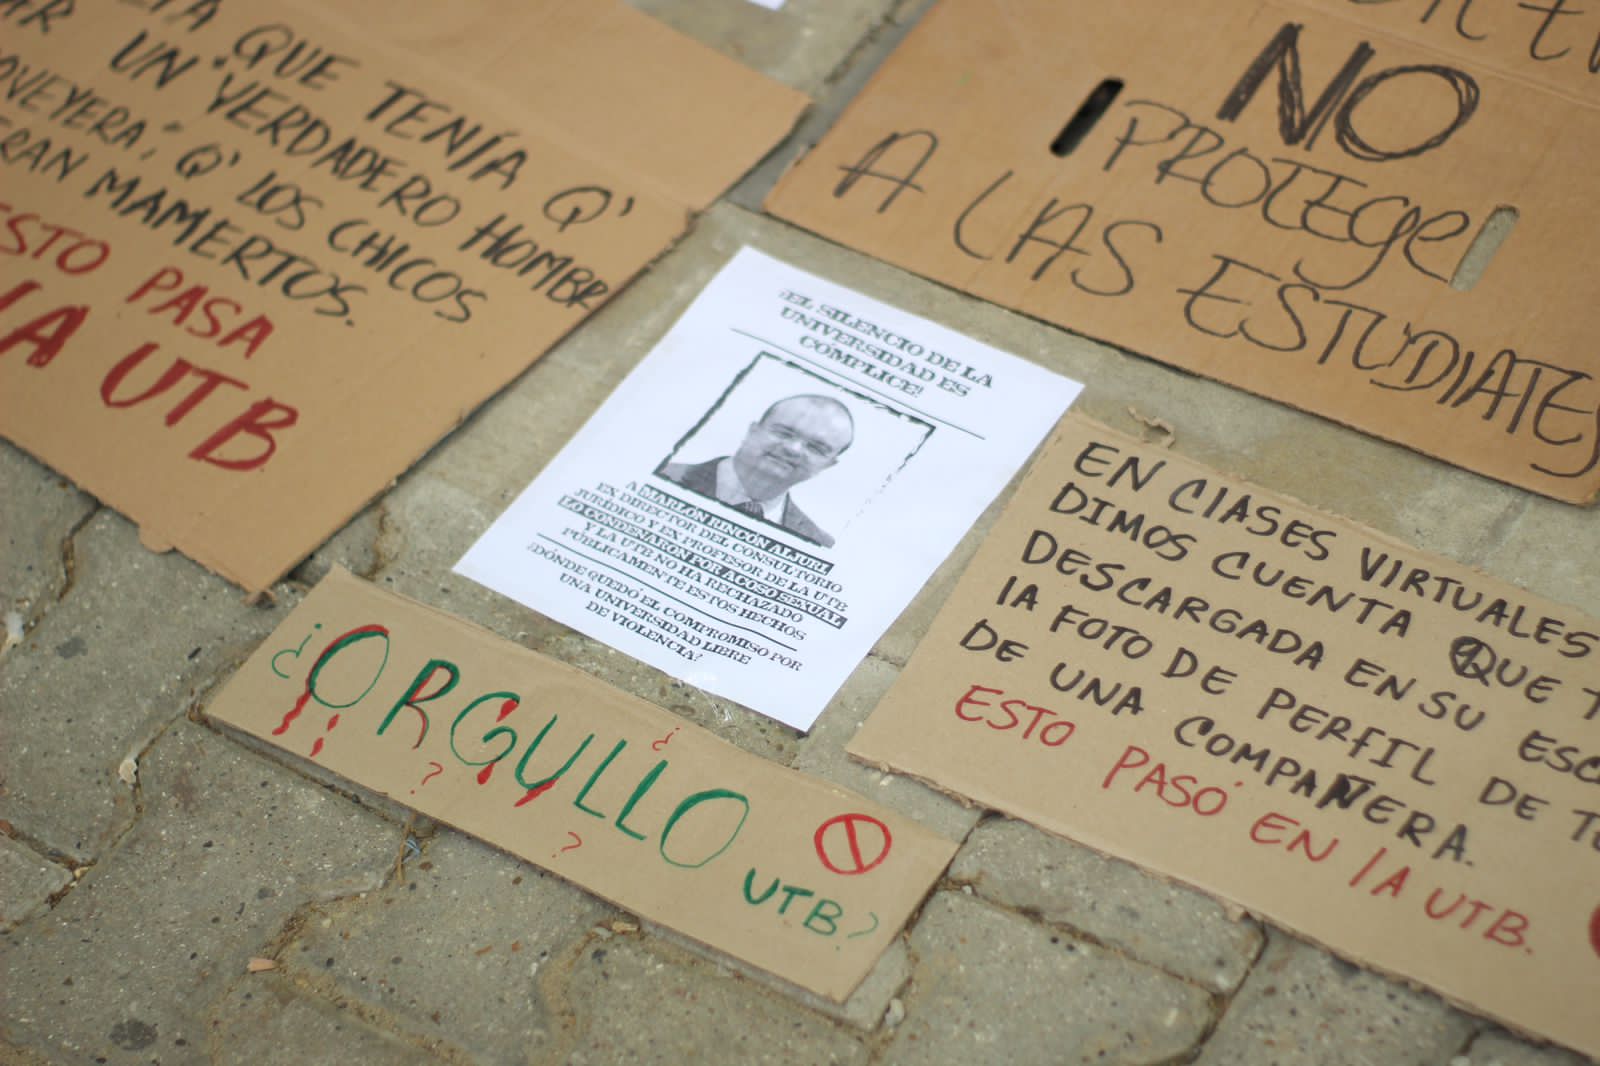 QUE TENÍA Q'
UN VERDADERO HOMBR
Q' LOS CHICOS
MAMERTOS.
ESTO PASA
UTB
NO
PROTEGE
A LAS ESTUDIATES
¡EL SILENCIO DE LA
UNIVERSIDAD ES
CÓMPLICE!
A MARLÓN RINCÓN ALJURI
EX DIRECTOR DEL CONSULTORIO
JURÍDICO Y EX PROFESOR DE LA UTB
LO CONDENARON POR ACOSO SEXUAL
Y LA UTB NO HA RECHAZADO
PÚBLICAMENTE ESTOS HECHOS
¿DÓNDE QUEDÓ EL COMPROMISO POR
UNA UNIVERSIDAD LIBRE
DE VIOLENCIA?
EN CLASES VIRTUALES
DIMOS CUENTA QUE
DESCARGADA EN SU
LA FOTO DE PERFIL DE
DE UNA COMPAÑERA.
ESTO PASÓ EN LA UTB.
¿ORGULLO
¿
?
?
UTB?